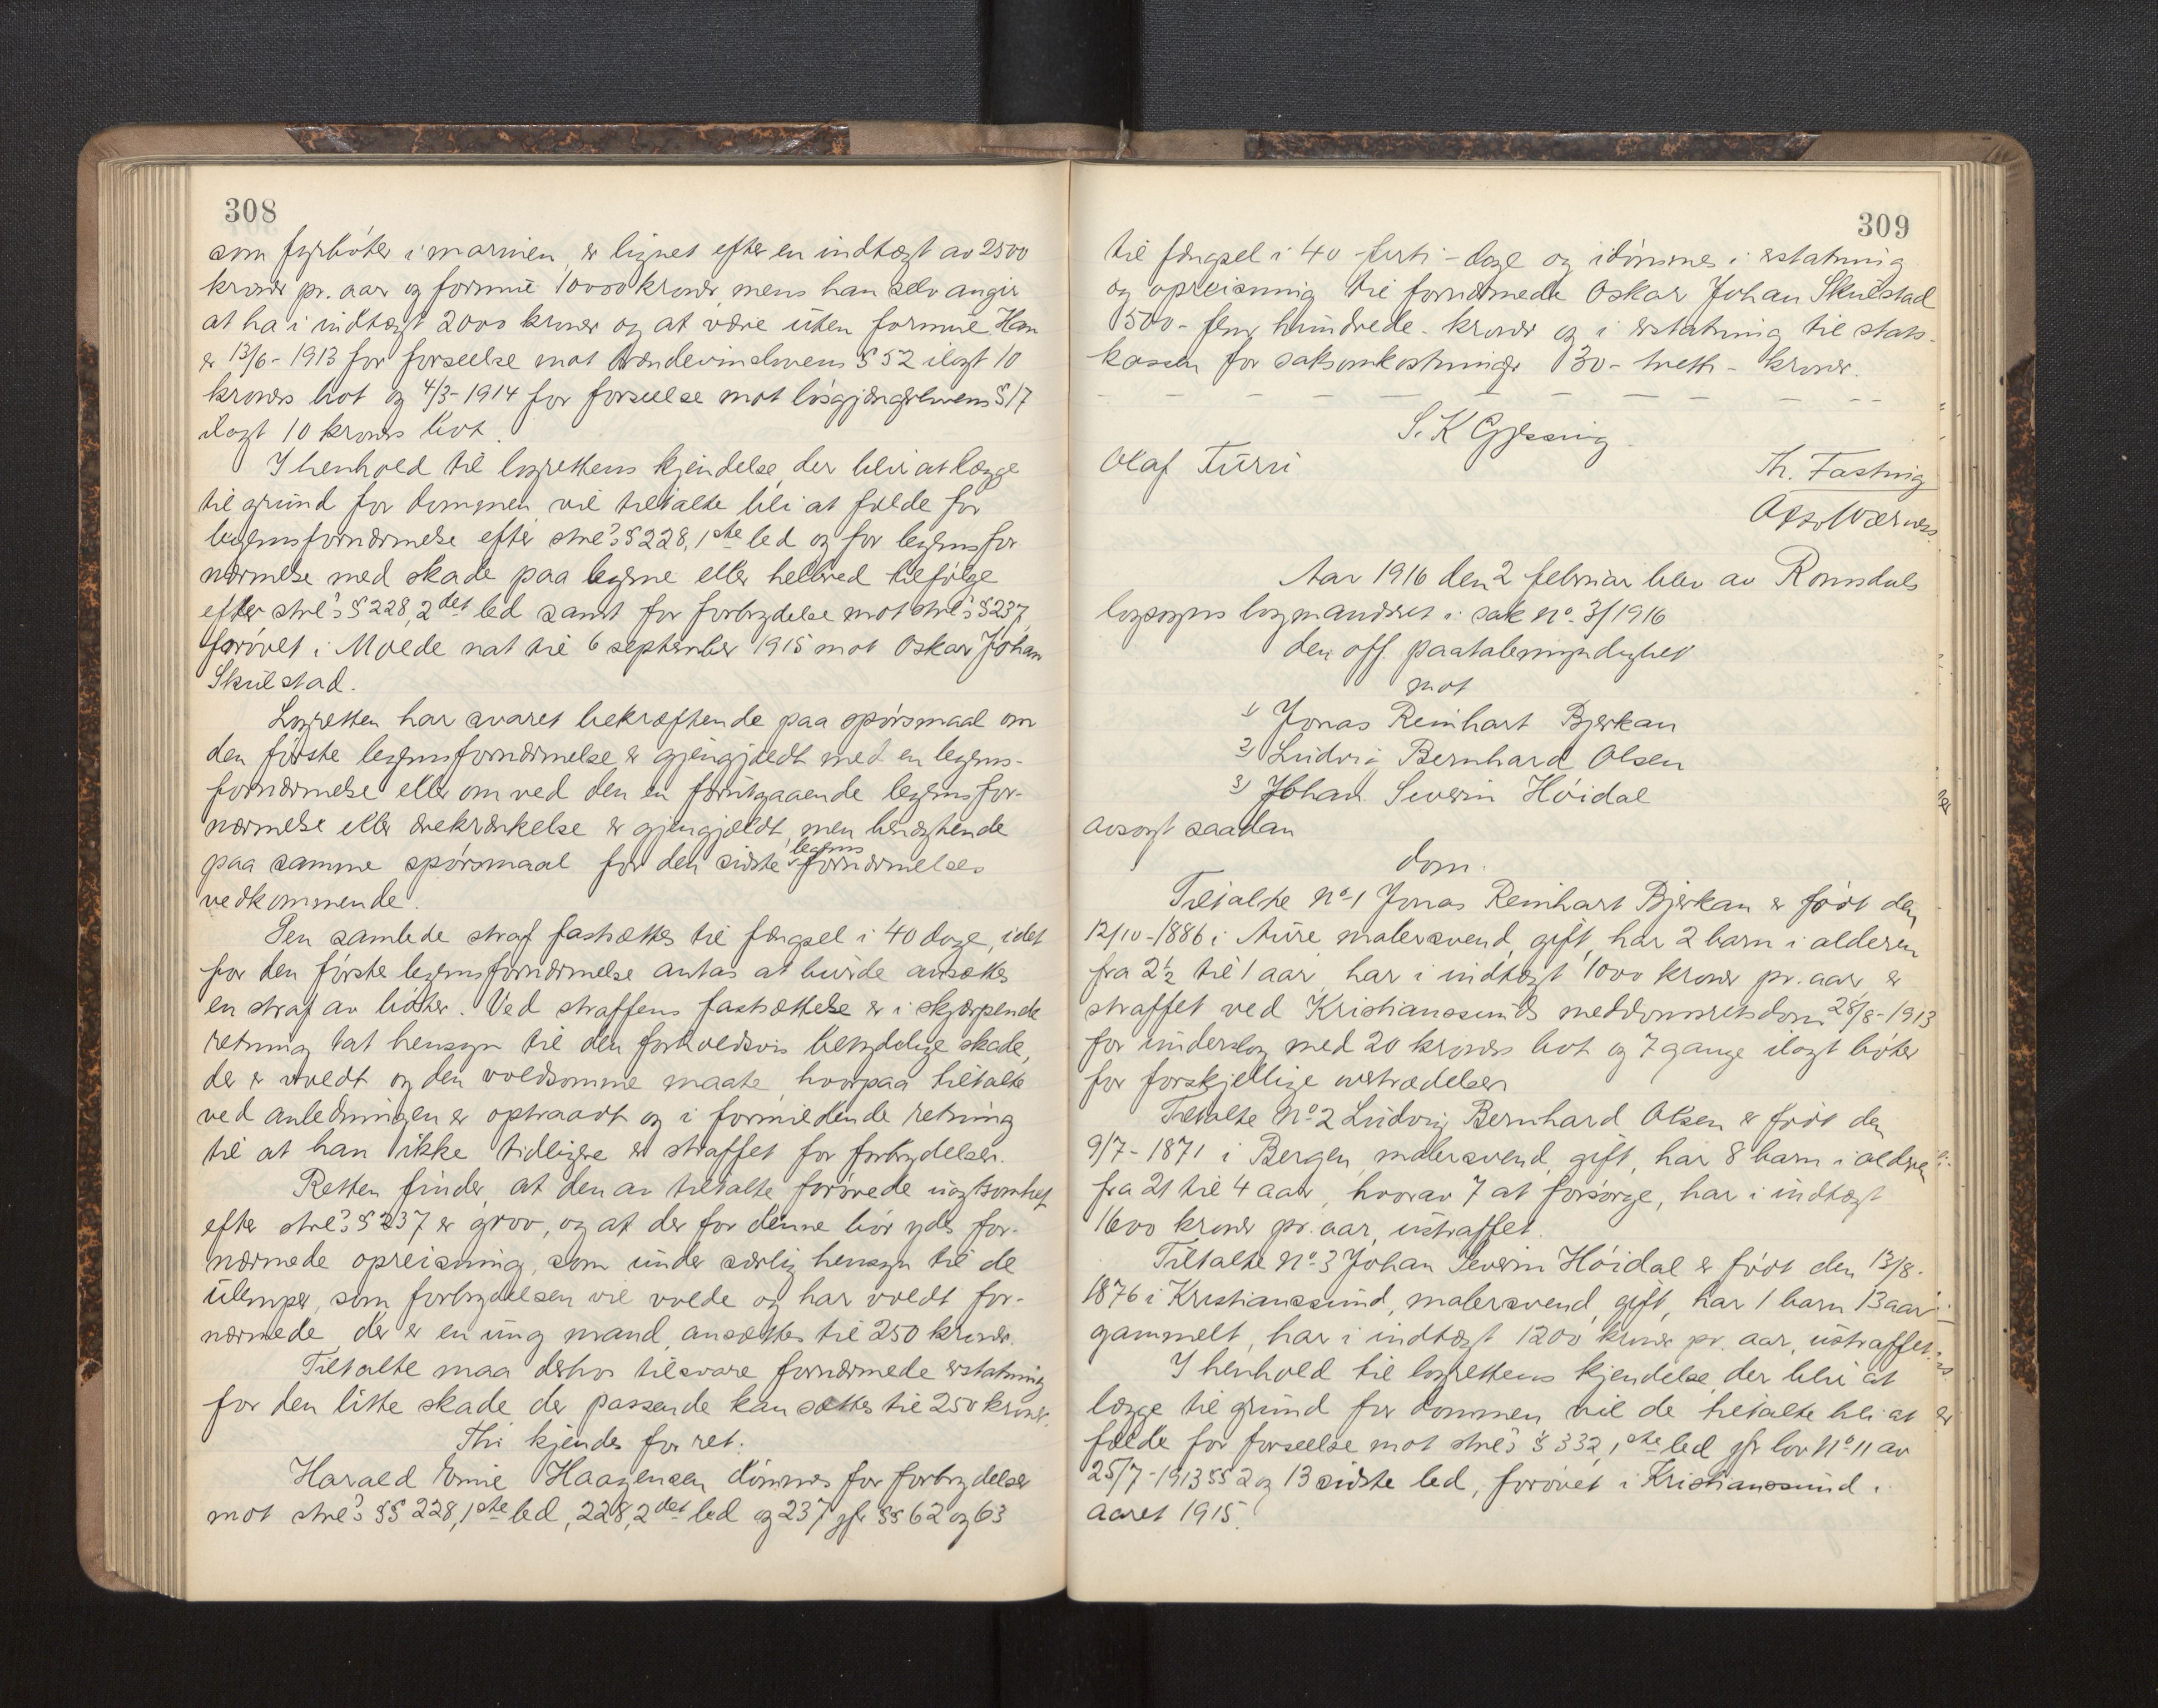 308
som fyrbøter i marinen, er lignet efter en indtægt av 2500
kroner pr. aar og formue 10000 kroner, mens han selv angir
at ha i indtægt 2000 kroner og at være uten formue. Han
er 13/6-1913 for forseelse mot brændevinslovens § 52 ilagt 10
kroners bot og 4/3-1914 for forseelse mot løsgjængerlovens § 17
ilagt 10 kroners bot.
I henhold til lagrettens kjendelse, der blir at lægge
til grund for dommen vil tiltalte bli at fælde for
legemsfornærmelse efter strl's § 228, 1ste led og for legemsfor
nærmelse med skade paa legeme eller helbred tilfølge
efter strl's § 228, 2det led samt for forbrydelse mot strl's § 237,
forøvet i Molde nat til 6 september 1915 mot Oskar Johan
Skulstad.
Lagretten har svaret bekræftende paa spørsmaal om
den første legemsfornærmelse er gjengjældt med en legems-
fornærmelse eller om ved den en forutgaaende legemsfor-
nærmelse eller ærekrænkelse er gjengjældt, men benægtende
paa samme spørsmaal for den sidste legemsfornærmelses
vedkommende.
Den samlede straf fastsættes til fængsel i 40 dage, idet
for den første legemsfornærmelse antas at burde ansættes
en straf av bøter. Ved straffens fastsættelse er i skjærpende
retning tat hensyn til den forholdsvis betydelige skade,
der er voldt og den voldsomme maate, hvorpaa tiltalte
ved anledningen er optraadt og i formildende retning
til at han ikke tidligere er straffet for forbrydelser.
Retten finder, at den av tiltalte forøvede uagtsomhet
efter strl's § 237 er grov, og at der for denne bør ydes for-
nærmede opreisning, som under særlig hensyn til de
ulemper, som forbrydelsen vil volde og har voldt for-
nærmede, der er en ung mand, ansættes til 250 kroner.
Tiltalte maa derhos tilsvare fornærmede erstatning
for den litte skade, der passende kan sættes til 250 kroner.
Thi kjendes for ret:
Harald Emil Haagensen dømmes for forbrydelser
mot strl's §§ 228, 1ste led, 228, 2det led og 237 jfr §§ 62 og 63
309
til fængsel i 40 - firti - dage og idømmes i erstatning
og opreisning til fornærmede Oskar Johan Skulstad
500 - fem hundrede - kroner og i erstatning til stats-
kassen for saksomkostninger 30 - tretti - kroner.
S. K Gjessing.
Olaf Turri
Th. Fastning
Aar 1916 den 2 februar blev av Romsdals
lagsogns lagmandsret i sak No. 3/1916
den off. paatalemyndighet
mot
1) Jonas Reinhart Bjerkan
2) Ludvig Bernhard Olsen
3) Johan Severin Høidal
avsagt saadan
dom.
Tiltalte No 1 Jonas Reinhart Bjerkan er født den
12/10-1886 i Aure, malersvend, gift, har 2 barn i alderen
fra 2½ til 1 aar, har i indtægt 1000 kroner pr. aar, er
straffet ved Kristianssunds meddomsretsdom 28/8-1913
for underslag med 20 kroners bot og 7 gange ilagt bøter
for forskjellige overtrædelser.
Tiltalte No 2 Ludvig Bernhard Olsen er født den
9/7-1871 i Bergen, malersvend, gift, har 8 barn i alderen
fra 21 til 4 aar, hvorav 7 at forsørge, har i indtægt
1600 kroner pr. aar, ustraffet.
Tiltalte No 3 Johan Severin Høidal er født den 13/8-
1876 i Kristianssund, malersvend, gift, har 1 barn 13 aar
gammelt, har i indtægt 1200 kroner pr. aar, ustraffet.
I henhold til lagrettens kjendelse, der blir at
lægge til grund for dommen vil de tiltalte bli at
fælde for forseelse mot strl's § 332, 1ste led jfr lov No 11 av
25/7-1913 §§ 2 og 13 sidste led, forøvet i Kristianssund i
aaret 1915.